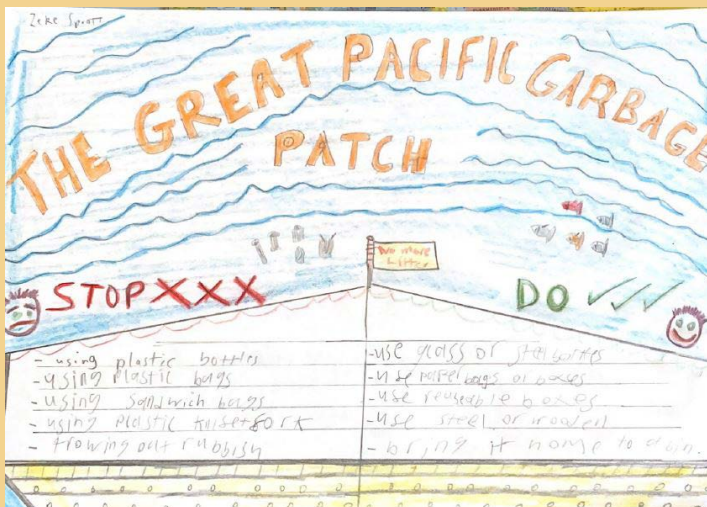 Zeke Spratt
THE GREAT PACIFIC GARBAGE
PATCH
No more
Litter
STOP XXX
- using plastic bottles
- using plastic bags
- using Sandwich bags
- using plastic
- trowing out rubbish
DO ✓✓✓
- use glass or bottles
- use paper bags or boxes
- use reuseable boxes
- use steel or wooden
- bring it home to a bin.